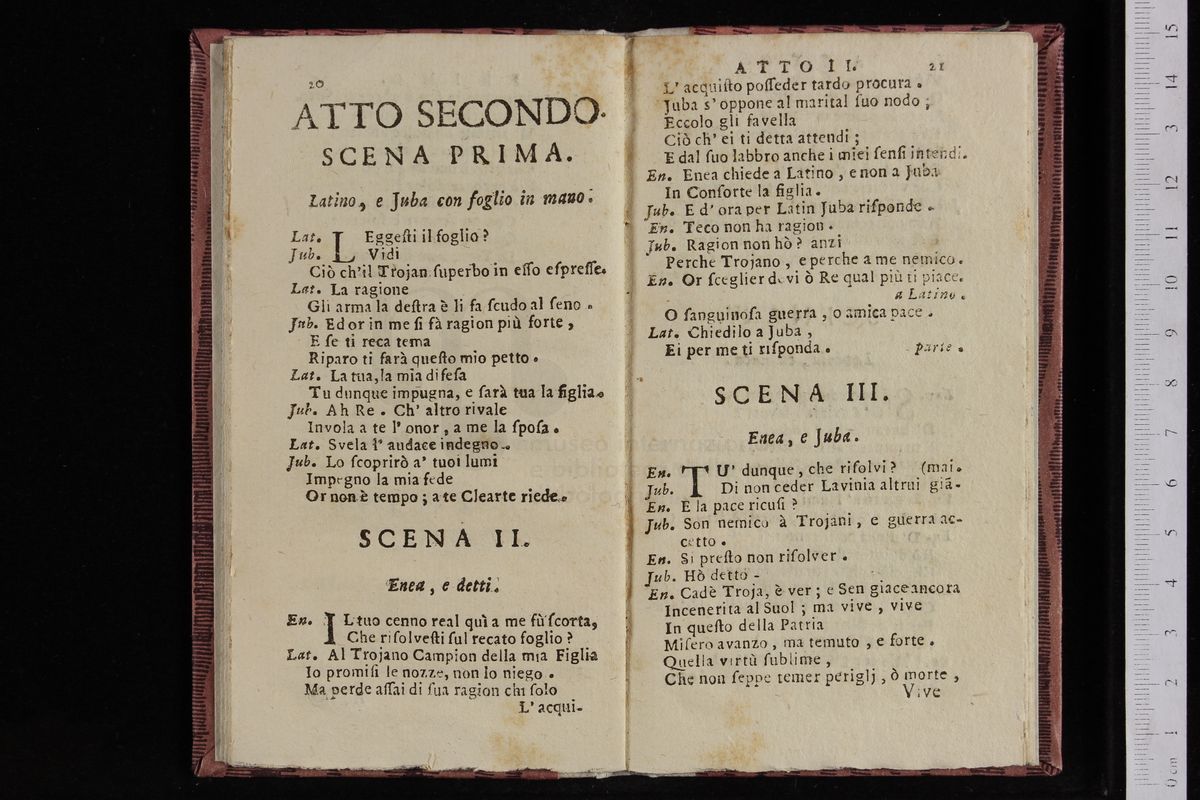 20
ATTO SECONDO.
SCENA PRIMA.
Latino, e Juba con foglio in mano.
Lat. LEggeſti il foglio?
Jub. Vidi
Ciò ch'il Trojan ſuperbo in eſſo eſpreſſe.
Lat. La ragione
Gli arma la deſtra è li fa ſcudo al ſeno.
Jub. Ed or in me ſi fà ragion più forte,
E ſe ti reca tema
Riparo ti farà queſto mio petto.
Lat. La tua, la mia difeſa
Tu dunque impugna, e ſarà tua la figlia.
Jub. Ah Re. Ch' altro rivale
Invola a te l' onor, a me la ſpoſa.
Lat. Svela l' audace indegno.
Jub. Lo ſcoprirò a' tuoi lumi
Impegno la mia fede
Or non è tempo; a te Clearte riede.
SCENA II.
Enea, e detti.
En. IL tuo cenno real quì a me fù ſcorta,
Che riſolveſti ſul recato foglio?
Lat. Al Trojano Campion della mia Figlia
Io promiſi le nozze, non lo niego.
Ma perde aſſai di ſua ragion chi ſolo
L' acqui-
ATTO II. 21
L' acquiſto poſſeder tardo procura.
Juba s' oppone al marital ſuo nodo;
Eccolo gli favella
Ciò ch' ei ti detta attendi;
E dal ſuo labbro anche i miei ſenſi intendi.
En. Enea chiede a Latino, e non a Juba
In Conſorte la figlia.
Jub. E d' ora per Latin Juba riſponde.
En. Teco non ha ragion.
Jub. Ragion non hò? anzi
Perche Trojano, e perche a me nemico.
En. Or ſceglier devi ò Re qual più ti piace.
a Latino.
O ſanguinoſa guerra, o amica pace.
Lat. Chiedilo a Juba,
Ei per me ti riſponda. parte.
SCENA III.
Enea, e Juba.
En. TU' dunque, che riſolvi? (mai.
Jub. Di non ceder Lavinia altrui giã-
En. E la pace ricuſi?
Jub. Son nemico à Trojani, e guerra ac-
cetto.
En. Si preſto non riſolver.
Jub. Hò detto -
En. Cadè Troja, è ver; e Sen giace ancora
Incenerita al Suol; ma vive, vive
In queſto della Patria
Miſero avanzo, ma temuto, e forte.
Quella virtù ſublime,
Che non ſeppe temer periglj, ò morte,
Vive